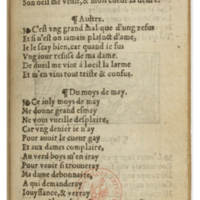 Son oeil me
¶Autre.
C'est vng grand mal que d'vng refus
Et si n'est on iamais plainct d'ame,
Ie le sçay bien, car quand ie fus
Vng iour refusé de ma dame.
De dueil me vint a l'oeil la larme
Et m'en vins tout triste & confus.
¶Du moys de may.
Ce ioly moys de may
Me donne grand esmay
Ne vous vueille desplaire,
Car vng denier ie n'ay
Pour auoir le cueur gay
Et aux dames complaire,
Au verd boys m'en iray
Pour veoir si trouueray
Ma dame debonnaire,
A qui demanderay
Iouyssance, & verray